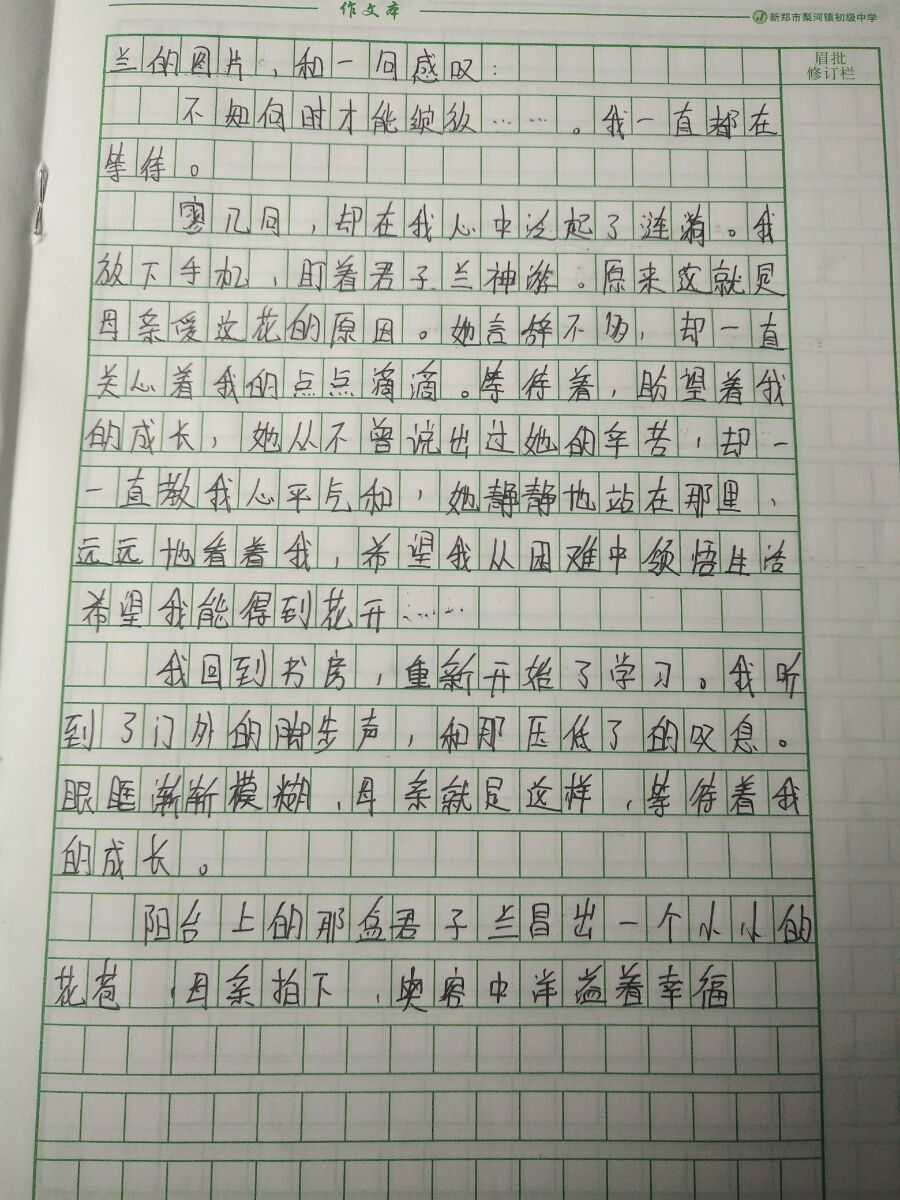 作文本
新郑市梨河镇初级中学
眉批
修订栏
兰的图片，和一句感叹：
不知何时才能绽放……。我一直都在
等待。
寥几句，却在我心中泛起了涟漪。我
放下手机，盯着君子兰神游。原来这就是
母亲爱这花的原因。她言辞不多，却一直
关心着我的点点滴滴。等待着，盼望着我
的成长，她从不曾说出过她的辛苦，却一
一直教我心平气和，她静静地站在那里，
远远地看着我，希望我从困难中领悟生活
希望我能得到花开……
我回到书房，重新开始了学习。我听
到了门外的脚步声，和那压低了的叹息。
眼眶渐渐模糊，母亲就是这样，等待着我
的成长。
阳台上的那盆君子兰冒出一个小小的
花苞，母亲拍下，笑容中洋溢着幸福